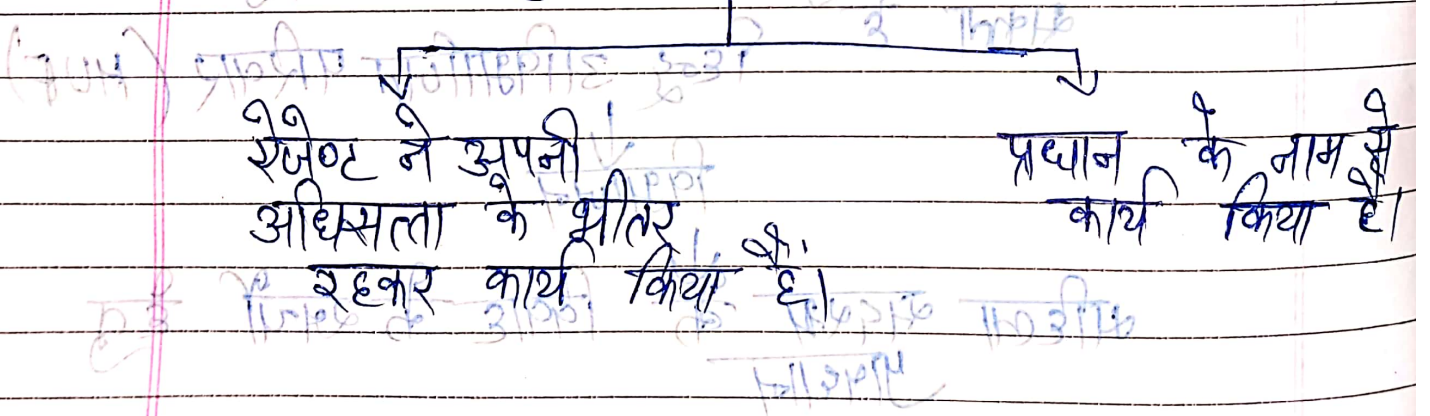 ऐजेण्ट ने अपनी
अधिसत्ता के भीतर
रहकर कार्य किया है।
प्रधान के नाम से
कार्य किया है।